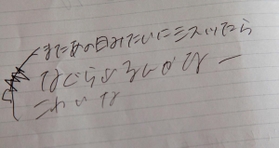 またあの日みたいにミスッたら
なぐられるんかなー
こわいな